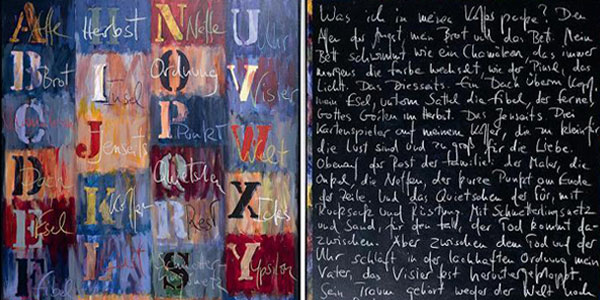 A Affe H Herbst N Neffe U Uhr
B Brot I Insel O Ordnung V Visier
C J Jenseits P Punkt W Welt
D Dach K Koffer Q X
E Esel L R Rest Y Ypsilon
F Fibel S
Was ich in meinen Koffer packe? Den
Affen der Angst, mein Brot und das Bett. Mein
Bett schwimmt wie ein Chamäleon, das immer
morgens die Farbe wechselt, wie der Pinsel, das
Licht. Das Diesseits. Ein Dach überm Kopf,
mein Esel, unterm Sattel die Fibel, der ferne
Gottes Garten im Herbst. Das Jenseits. Drei
Kartenspieler auf meinem Koffer, die zu klein für
die Lust sind und zu groß für die Liebe.
Obenauf der Rest der Familie: der Maler, die
Onkel, die Neffen, der kurze Punkt am Ende
der Zeile und das Quietschen der Tür, mit
Rucksack und Rüstung. Mit Schmetterlingsnetz
und Sand, für den Fall, der Tod kommt da-
zwischen. Aber zwischen dem Tod und der
Uhr schläft in der lachhaften Ordnung mein
Vater, das Visier fest heruntergeklappt.
Sein Traum gehört weder der Welt noch